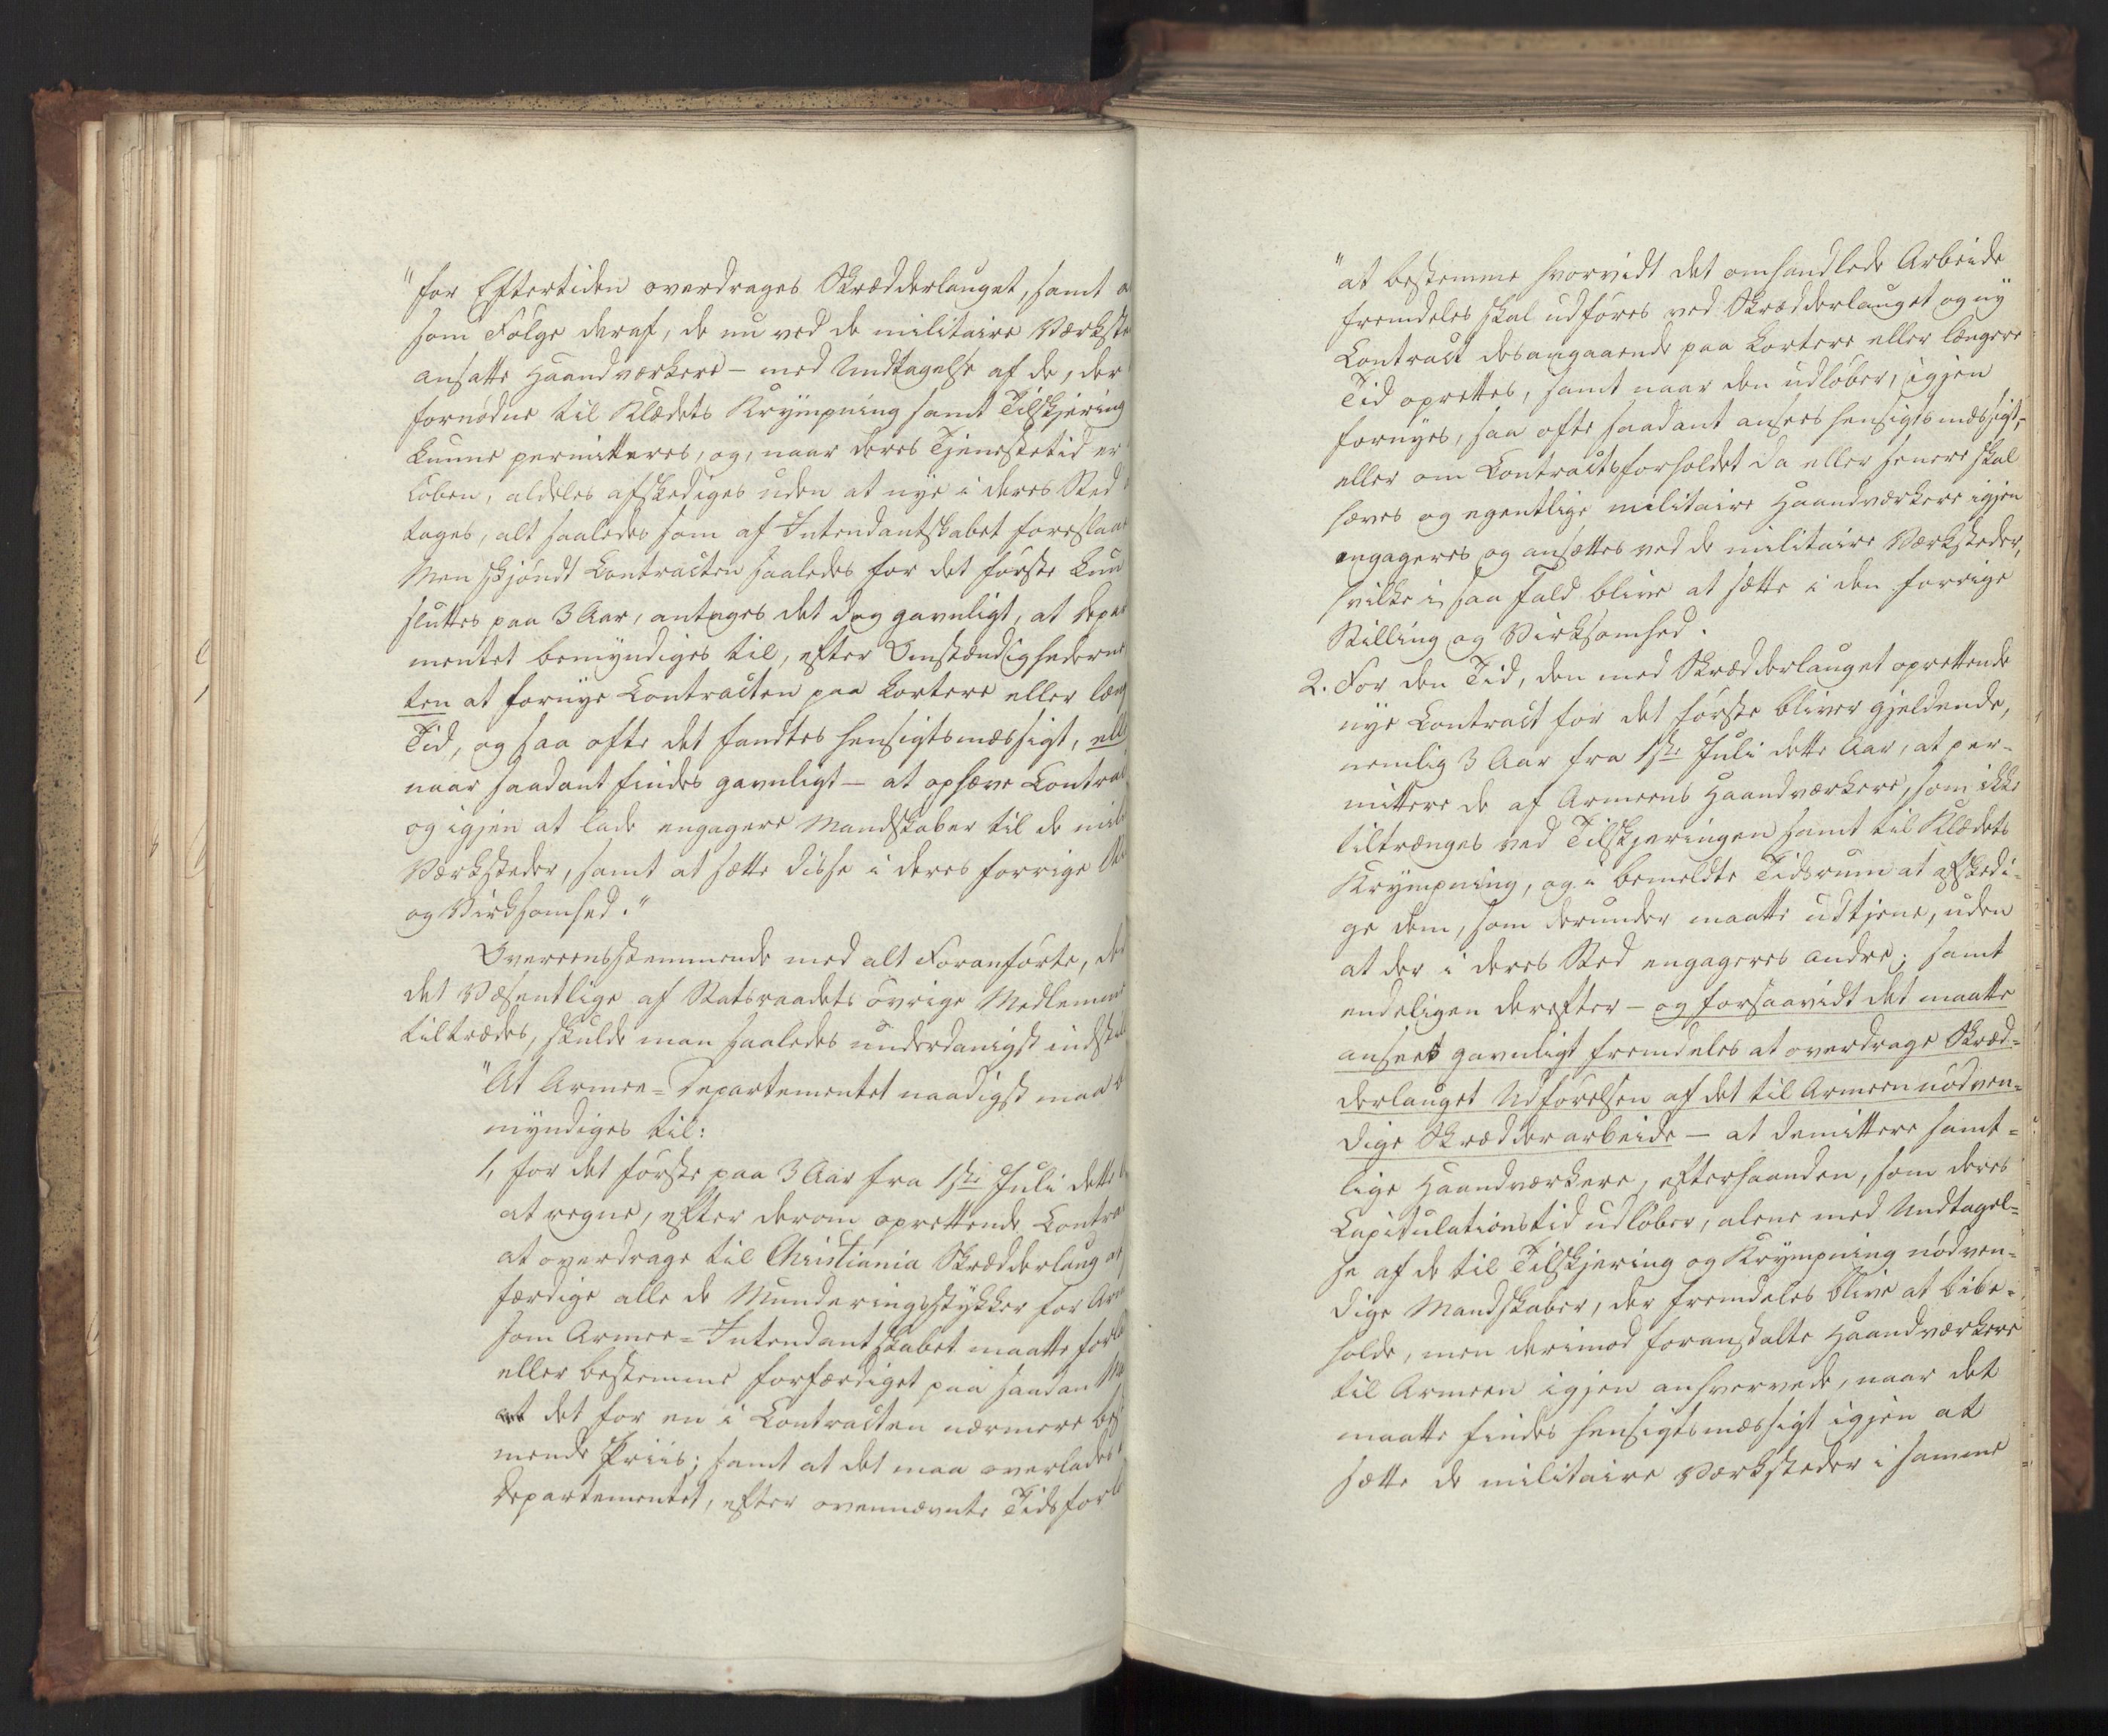 "for Eftertiden overdrages Skrædderlauget, samt a
som Følge deraf, de nu ved de militaire Værkste
ansatte Haandværkere – med Undtagelse af de, der
fornødne til Klædets Krympning samt Tilskjæring
kunne permitteres, og, naar deres Tjenestetid er
løben, aldeles afskediges uden at nye i deres Sted
tages, alt saaledes som af Intendantskabet foreslaae
Men skjøndt Contracten saaledes for det første kun
sluttes paa 3 Aar, antages det dog gavnligt, at Depar
mentet bemyndiges til, efter Omstændighederne
ten at fornye Contracten paa kortere eller læng
Tid, og saa ofte det fandtes hensigtsmæssigt, elle
naar saadant findes gavnligt – at ophæve Contrac
og igjen at lade engagere Mandskaber til de mili
Værksteder, samt at sætte disse i deres forrige
og Virksomhed."
Overeensstemmende med alt Foranførte, der
det Væsentlige af Statsraadets øvrige Medlemme
tiltrædes, skulde man saaledes underdanigst indstil
"At Armee-Departementet naadigst maa
myndiges til:
1, for det første paa 3 Aar fra 1ste Juli dette
at regne, efter derom oprettende Contra
at overdrage til Christiania Skrædderlaug at
færdige alle de Munderingsstykker for Arm
som Armee-Intendantskabet maatte forla
eller bestemme forfærdiget paa saadan
at det for en i Contracten nærmere best
mende Priis; samt at det maa overlades
Departementet, efter ovennævnte Tidsforlø
"at bestemme hvorvidt det omhandlede Arbeide
fremdeles skal udføres ved Skrædderlauget og ny
Contract desangaaende paa kortere eller længere
Tid oprettes, samt naar den udløber, igjen
fornyes, saa ofte saadant ansees hensigtsmæssigt,
eller om Contractsforholdet da eller senere skal
hæves og egentlige militaire Haandværkere igjen
engageres og ansættes ved de militaire Værksteder,
hvilke i saa Fald blive at sætte i den forrige
Stilling og Virksomhed.
2. For den Tid, den med Skrædderlauget oprettende
nye Contract for det første bliver gjeldende,
nemlig 3 Aar fra 1ste Juli dette Aar, at per-
mittere de af Armeens Haandværkere, som ikke
tiltrænges ved Tilskjæringen samt til Klædets
Krympning, og i bemeldte Tidsrum at afskedi-
ge dem, som derunder maatte udtjene, uden
at der i deres Sted engageres andre; samt
endeligen derefter – og forsaavidt det maatte
ansees gavnligt fremdeles at overdrage Skræd-
derlauget Udførelsen af det til Armeen nødven-
dige Skrædderarbeide – at demittere samt-
lige Haandværkere, efterhaanden, som deres
Capitulationstid udløber, alene med Undtagel-
se af de til Tilskjæring og Krympning nødven-
dige Mandskaber, der fremdeles blive at bibe-
holde, men derimod foranstalte Haandværkere
til Armeen igjen anhvervede, naar det
maatte findes hensigtsmæssigt igjen at
sætte de militaire Værksteder i samme